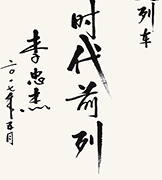 列车
时代前列
李忠杰
二〇一七年五月